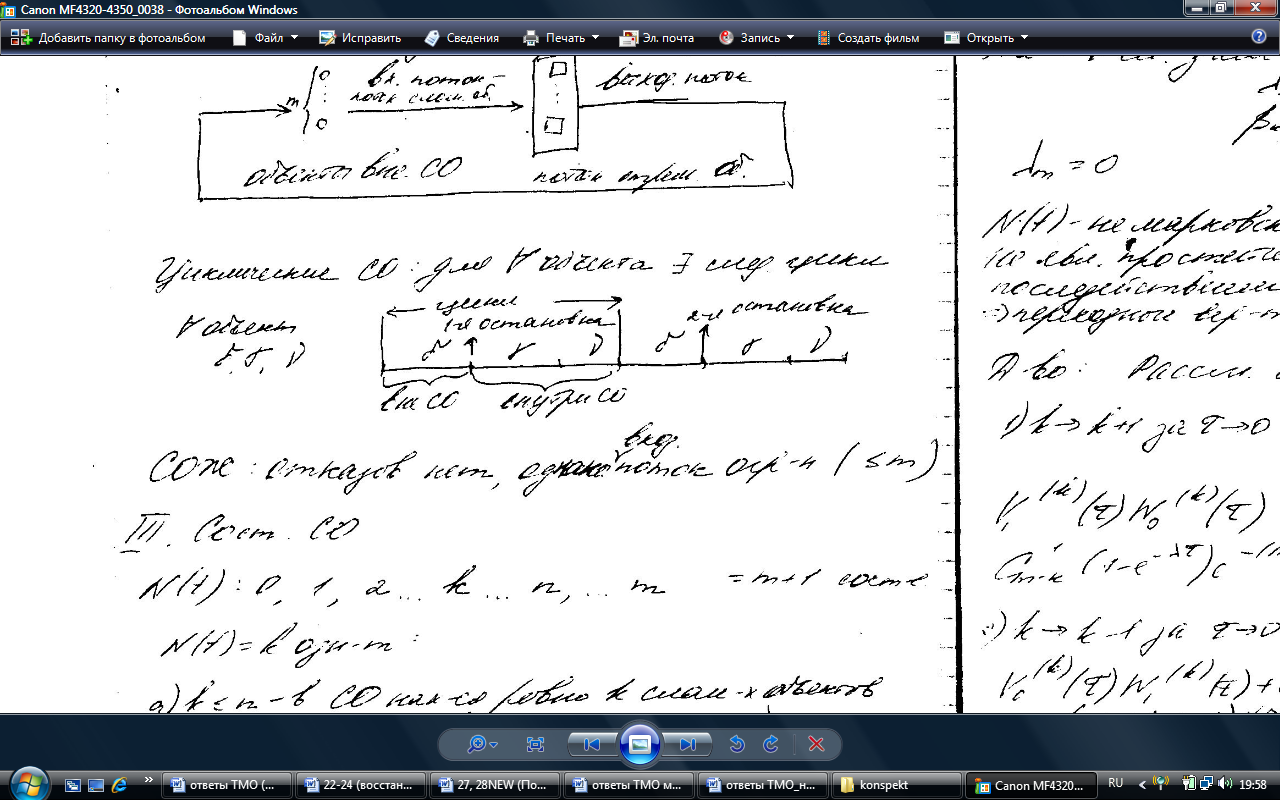 Canon MF4320-4350_0038 - Фотоальбом Windows
Добавить папку в фотоальбом Файл Исправить Сведения Печать Эл. почта Запись Создать фильм Открыть
m
вх. поток -
поток слом. об.
выход. поток
объекты вне СО
поток отрем. об.
Циклические СО: для ∀ объекта ∃ след. циклы
∀ объект
цикл
1-я остановка
2-я остановка
вне СО
внутри СО
вход.
СОЖ: отказов нет, однако поток огр-н (≤ m)
III. Сост. СО
N(t): 0, 1, 2 ... k ... n, ... m = m+1 сост
N(t) = k
а) k ≤ n - в СО нах-ся ровно k слом-х объектов
λm = 0
N(t) - не марковск
не явл. простейш
последействием
переходные вер-т
Д-во: Рассм.
1) k → k+1 за τ→0
V₁⁽ᵏ⁾(τ) W₀⁽ᵏ⁾(τ)
2) k → k-1 за τ→0
V₀⁽ᵏ⁾(τ) W₁⁽ᵏ⁾(τ) +
ответы ТМО (... 22-24 (восстан... 27, 28NEW (По... ответы ТМО м... ответы ТМО_н... konspekt Canon MF4320... RU 19:58